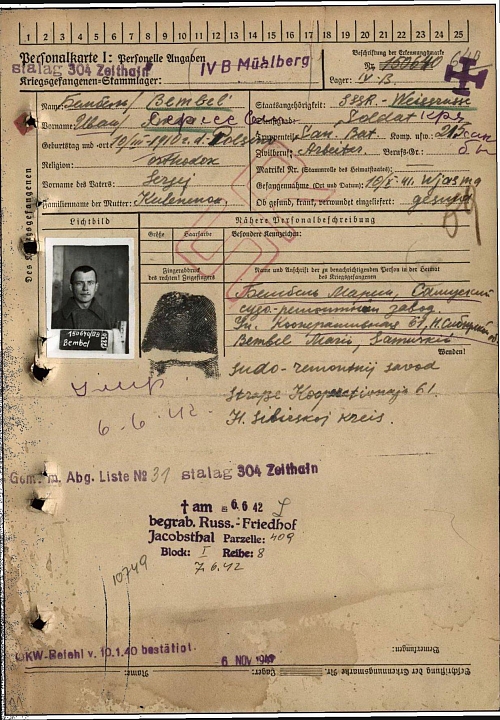 1 2 3 4 5 6 7 8 9 10 11 12 13 14 15 16 17 18 19 20 21 22 23 24 25
Personalkarte I: Personelle Angaben
stalag 304 Zeithain
Kriegsgefangenen-Stammlager:
IV B Mühlberg
Beschriftung der Erkennungsmarke
Nr. 150640
Lager: IV B
Des Kriegsgefangenen
Name: Bembel
Vorname:
Geburtstag und -ort
Religion: orthodox
Vorname des Vaters: Sergej
Familienname der Mutter:
Staatsangehörigkeit: SSSR
Dienstgrad: Soldat
Truppenteil: San. Bat. Komp. usw.
Zivilberuf: Arbeiter Berufs-Gr.:
Matrikel Nr. (Stammrolle des Heimatstaates):
Gefangennahme (Ort und Datum): 10/X 41. Wjasma
Ob gesund, krank, verwundet eingeliefert: gesund
Lichtbild
Nähere Personalbeschreibung
Größe
Haarfarbe
Besondere Kennzeichen:
Fingerabdruck
des rechten! Zeigefingers
Name und Anschrift der zu benachrichtigenden Person in der Heimat
des Kriegsgefangenen
Бембель Мария,
судо-ремонтный завод.
Ул. Кооперативная 61,
Bembel Maria,
Wenden!
Sudo-remontnij savod
Straße Kooperationaja 61.
N. Sibirskoj kreis.
Bembel
Умер
6.6.42.
Gem. m. Abg. Liste № 31 stalag 304 Zeithain
† am 6.6 42
begrab. Russ.-Friedhof
Jacobsthal Parzelle: 409
Block: I Reihe: 8
7.6.42
10749
OKW-Befehl v. 10.1.40 bestätigt.
6 NOV 1941
Bemerkungen:
Name:
Lager:
Beschriftung der Erkennungsmarke Nr.